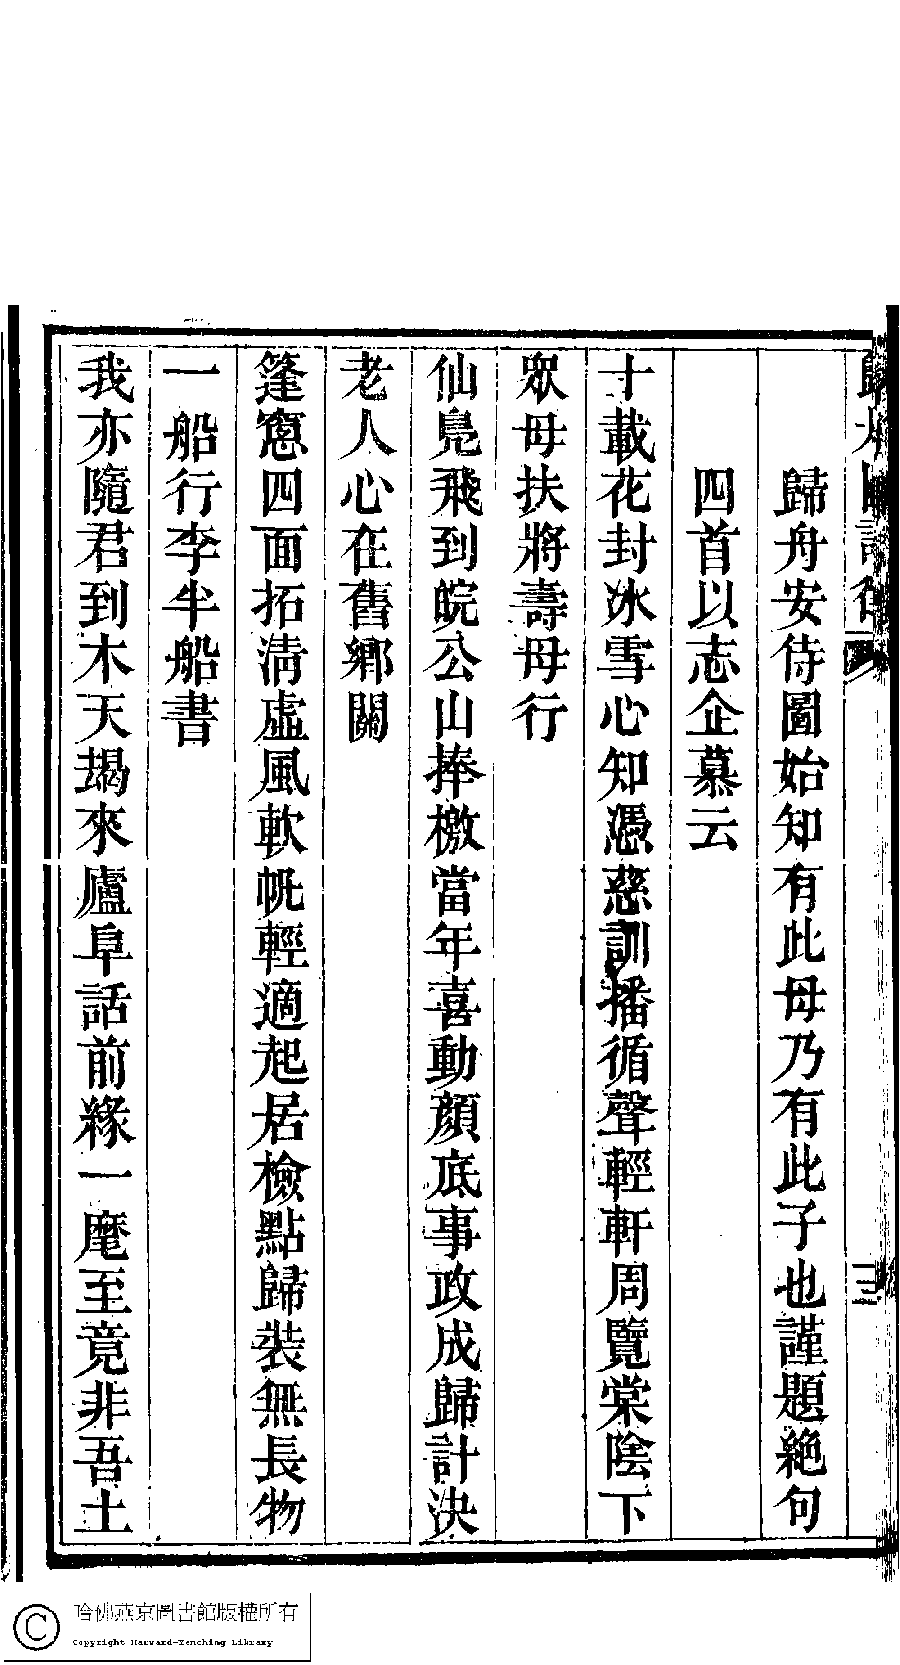 歸舟安侍圖始知有此母乃有此子也謹題絶句
四首以志企慕云
十載花封冰雪心知憑慈訓播循聲輕軒周覽棠陰下
眾母扶將壽母行
仙鳧飛到皖公山捧檄當年喜動顏底事政成歸計決
老人心在舊鄉關
篷窻四面拓淸虛風軟帆輕適起居檢點歸裝無長物
一船行李半船書
我亦隨君到木天朅來廬阜話前緣一麾至竟非吾土
哈佛燕京圖書館版權所有
Copyright Harvard-Yenching Library